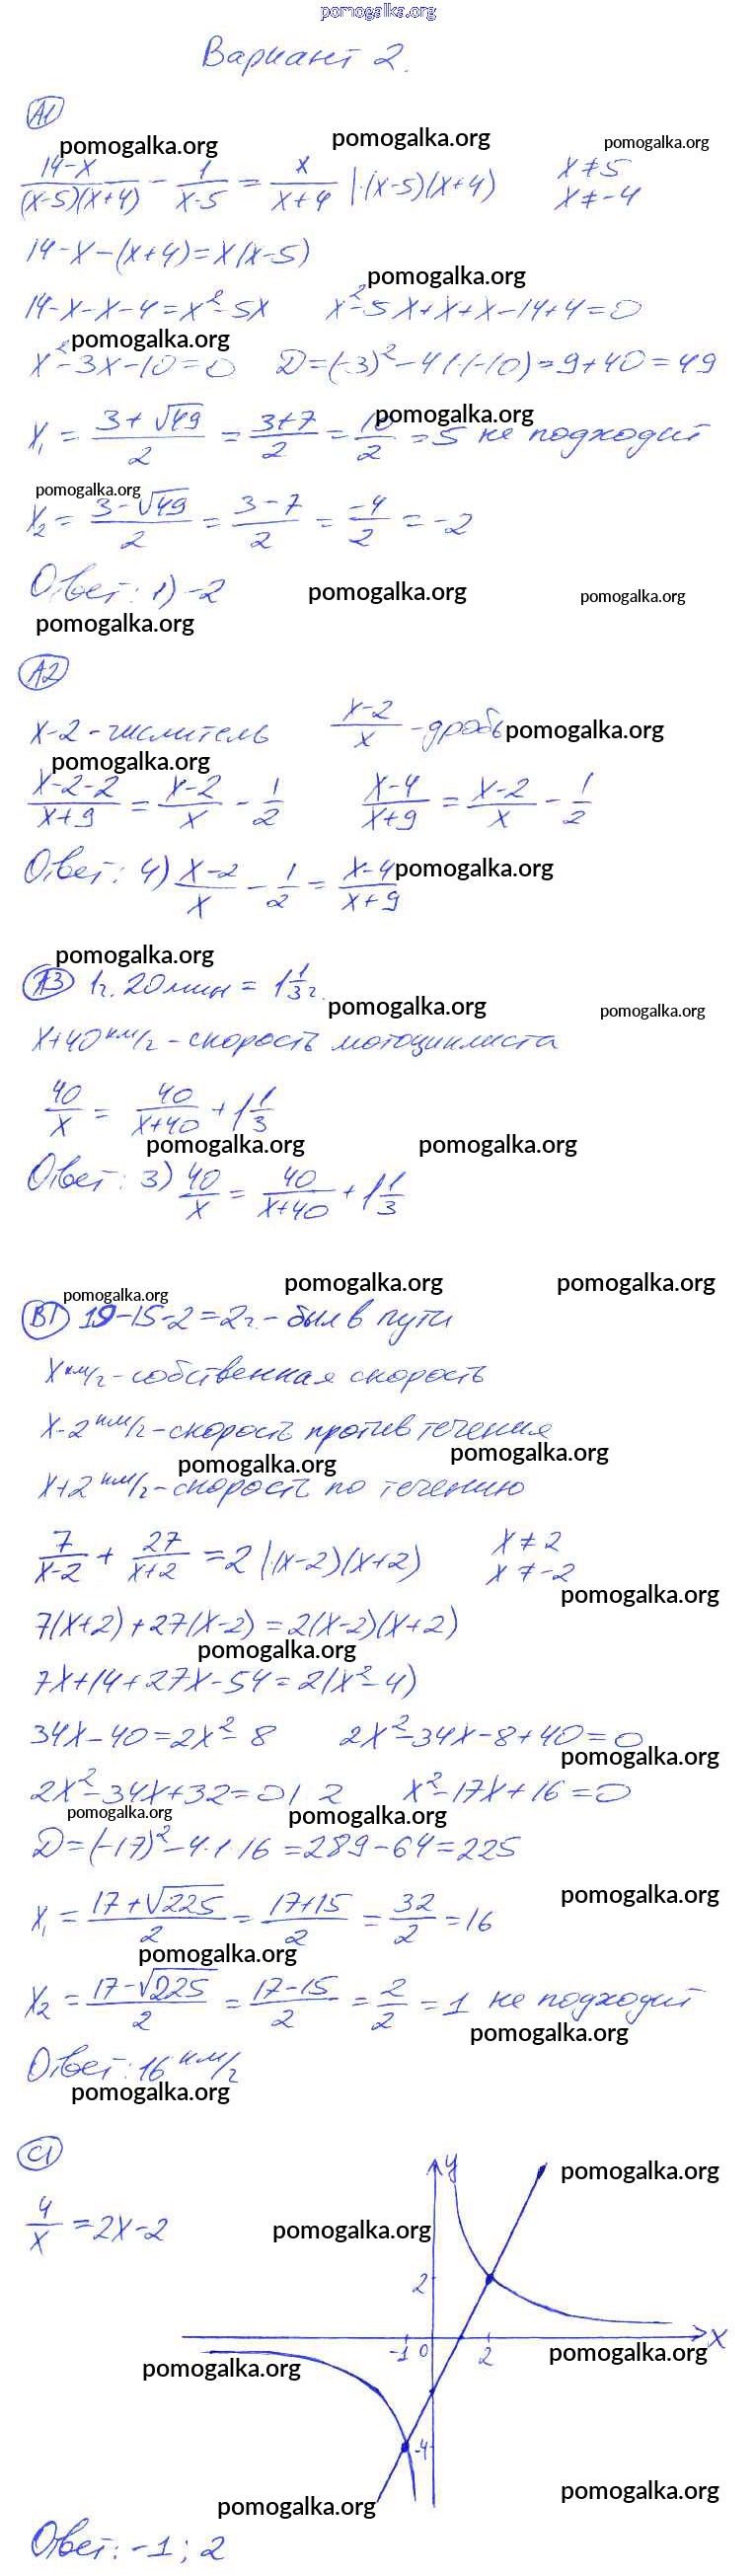 pomogalka.org
Вариант 2.
А1
pomogalka.org pomogalka.org pomogalka.org
(14-x)/((x-5)(x+4)) - 1/(x-5) = x/(x+4) |·(x-5)(x+4) x≠5
x≠-4
14-x-(x+4)=x(x-5)
pomogalka.org
14-x-x-4=x²-5x x²-5x+x+x-14+4=0
pomogalka.org
x²-3x-10=0 D=(-3)²-4·(-10)=9+40=49
pomogalka.org
x₁ = (3+√49)/2 = (3+7)/2 = 10/2 = 5 не подходит
pomogalka.org
x₂ = (3-√49)/2 = (3-7)/2 = -4/2 = -2
Ответ: 1) -2 pomogalka.org pomogalka.org
pomogalka.org
А2
x-2 - числитель (x-2)/x - дробь pomogalka.org
pomogalka.org
(x-2-2)/(x+9) = (x-2)/x - 1/2 (x-4)/(x+9) = (x-2)/x - 1/2
Ответ: 4) (x-2)/x - 1/2 = (x-4)/(x+9) pomogalka.org
pomogalka.org
А3 1ч. 20мин = 1 1/3 ч.
pomogalka.org pomogalka.org
x+40 км/ч - скорость мотоциклиста
40/x = 40/(x+40) + 1 1/3
pomogalka.org pomogalka.org
Ответ: 3) 40/x = 40/(x+40) + 1 1/3
pomogalka.org pomogalka.org
pomogalka.org
В1 19-15-2=2ч. - был в пути
x км/ч - собственная скорость
x-2 км/ч - скорость против течения
pomogalka.org pomogalka.org
x+2 км/ч - скорость по течению
7/(x-2) + 27/(x+2) = 2 |·(x-2)(x+2) x≠2
x≠-2
pomogalka.org
7(x+2)+27(x-2)=2(x-2)(x+2)
pomogalka.org
7x+14+27x-54=2(x²-4)
34x-40=2x²-8 2x²-34x-8+40=0
pomogalka.org
2x²-34x+32=0 |:2 x²-17x+16=0
pomogalka.org pomogalka.org
D=(-17)²-4·1·16=289-64=225
pomogalka.org
x₁ = (17+√225)/2 = (17+15)/2 = 32/2 = 16
pomogalka.org
x₂ = (17-√225)/2 = (17-15)/2 = 2/2 = 1 не подходит
pomogalka.org
Ответ: 16 км/ч
pomogalka.org
С1
y pomogalka.org
4/x = 2x-2 pomogalka.org
2
x
-1 0 2 pomogalka.org
pomogalka.org
-4
pomogalka.org pomogalka.org
Ответ: -1; 2